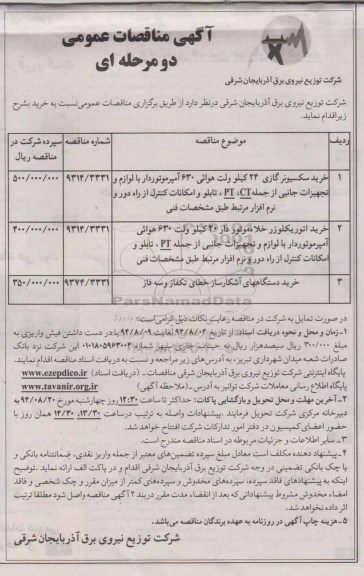 آگهی مناقصات عمومی
دو مرحله ای
شرکت توزیع نیروی برق آذربایجان شرقی
شرکت توزیع نیروی برق آذربایجان شرقی درنظر دارد از طریق برگزاری مناقصات عمومی نسبت به خرید بشرح
زیر اقدام نماید.
ردیف موضوع مناقصه شماره مناقصه سپرده شرکت در مناقصه ریال
۱ خرید سکسیونر گازی ۲۴ کیلو ولت هوائی ۶۳۰ آمپرموتوردار با لوازم و ۹۳۱۴/۳۳۳۱ ۵۰۰/۰۰۰/۰۰۰
تجهیزات جانبی از جمله CT، PT ، تابلو و امکانات کنترل از راه دور و
نرم افزار مرتبط طبق مشخصات فنی
۲ خرید اتوریکلوزر خلاء موتور دار ۲۰ کیلو ولت ۶۳۰ هوائی ۹۳۱۴/۳۳۳۱ ۴۰۰/۰۰۰/۰۰۰
آمپرموتوردار با لوازم و تجهیزات جانبی از جمله PT ، تابلو و
امکانات کنترل از راه دور و نرم افزار مرتبط طبق مشخصات فنی
۳ خرید دستگاههای آشکارساز خطای تکفاز وسه فاز ۹۳۷۴/۳۳۳۱ ۳۵۰/۰۰۰/۰۰۰
در صورت تمایل به شرکت در مناقصه رعایت نکات ذیل الزامی است:
۱-زمان و محل و نحوه دریافت اسناد: از تاریخ ۹۴/۸/۰۲ لغایت ۹۴/۸/۰۹ بادر دست داشتن فیش واریزی به
مبلغ ۳۰۰/۰۰۰ ریال سیصدهزار ریال به حساب جاری سپهر شماره ۰۱۰۱۸۰۵۹۶۳۰۰۴ این شرکت نزد بانک
صادرات شعبه میدان شهرداری تبریز، به آدرس های زیر مراجعه و نسبت به دریافت اسناد مناقصه اقدام نمایند.
پایگاه اینترنتی شرکت توزیع نیروی برق آذربایجان شرقی مناقصات - (دریافت اسناد) www.ezepdico.ir
پایگاه اطلاع رسانی معاملات شرکت توانیر به آدرس-(ملاحظه آگهی) www.tavanir.org.ir
۲-آخرین مهلت و محل تحویل و بازگشایی پاکات: حداکثر تا ساعت ۱۲:۳۰ روز چهارشنبه مورخ ۹۴/۰۸/۲۰ به
دبیرخانه مرکزی شرکت تحویل فرمایند .پیشنهادات واصله به ترتیب درساعت ۱۳/۳۰، ۱۴/۳۰ همان روز با
حضور اعضای کمیسیون در دفتر امور تدارکات شرکت افتتاح خواهد شد.
۳- سایر اطلاعات و جزئیات مربوطه در اسناد مناقصه مندرج است.
۴-پیشنهاد دهنده مکلف است معادل مبلغ سپرده تضمین های معتبر از جمله واریز نقدی، ضمانتنامه بانکی و
یا چک بانکی تضمینی در وجه شرکت توزیع نیروی برق آذربایجان شرقی اقدام و در پاکت الف ارائه نماید .توضیح
اینکه به پیشنهادهای فاقد سپرده، سپرده‌های مخدوش و سپرده‌های کمتر از میزان مقرر و چک شخصی و فاقد
امضاء مخدوش مشروط پیشنهاداتی که بعد از انقضاء مدت مقرر دربند ۲ آگهی مناقصه واصل شود مطلقا ترتیب
اثر داده نخواهد شد.
۵-هزینه چاپ آگهی در روزنامه به عهده برندگان مناقصه می‌باشد.
شرکت توزیع نیروی برق آذربایجان شرقی